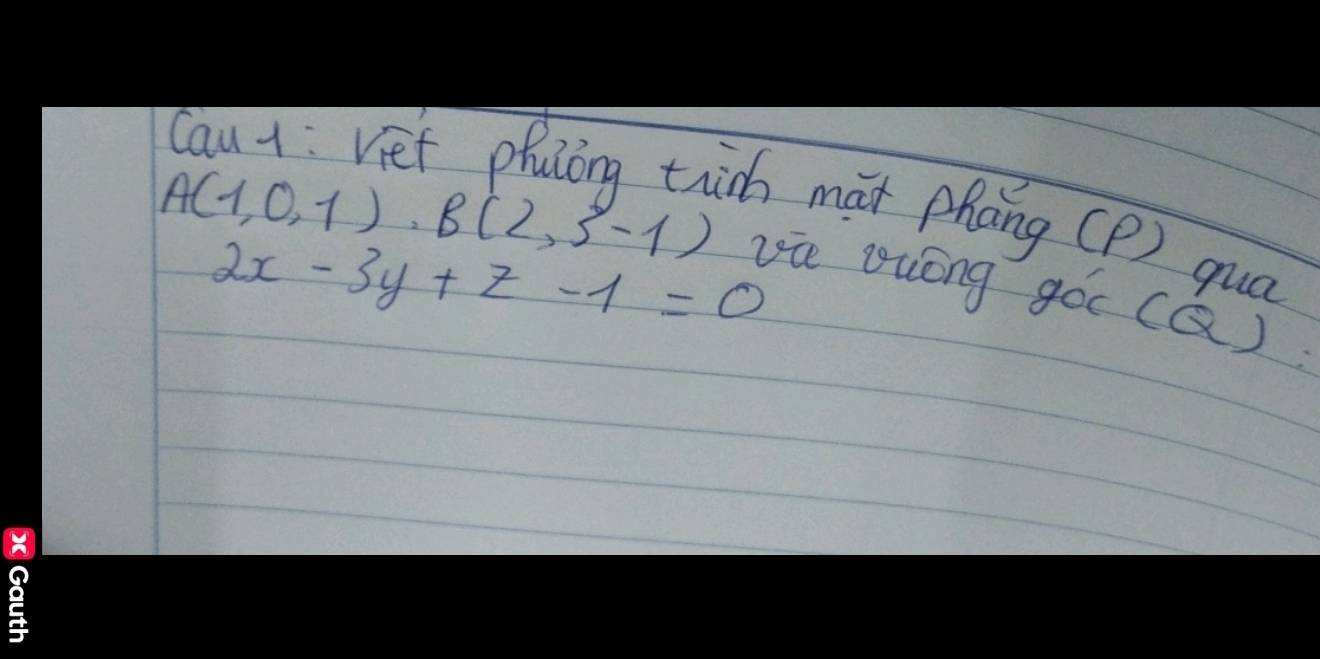 Câu 1: Viết phương trình mặt phẳng (P) qua
A(1,0,1). B(2,3-1) và vuông góc (Q):
2x - 3y + z - 1 = 0
Gauth